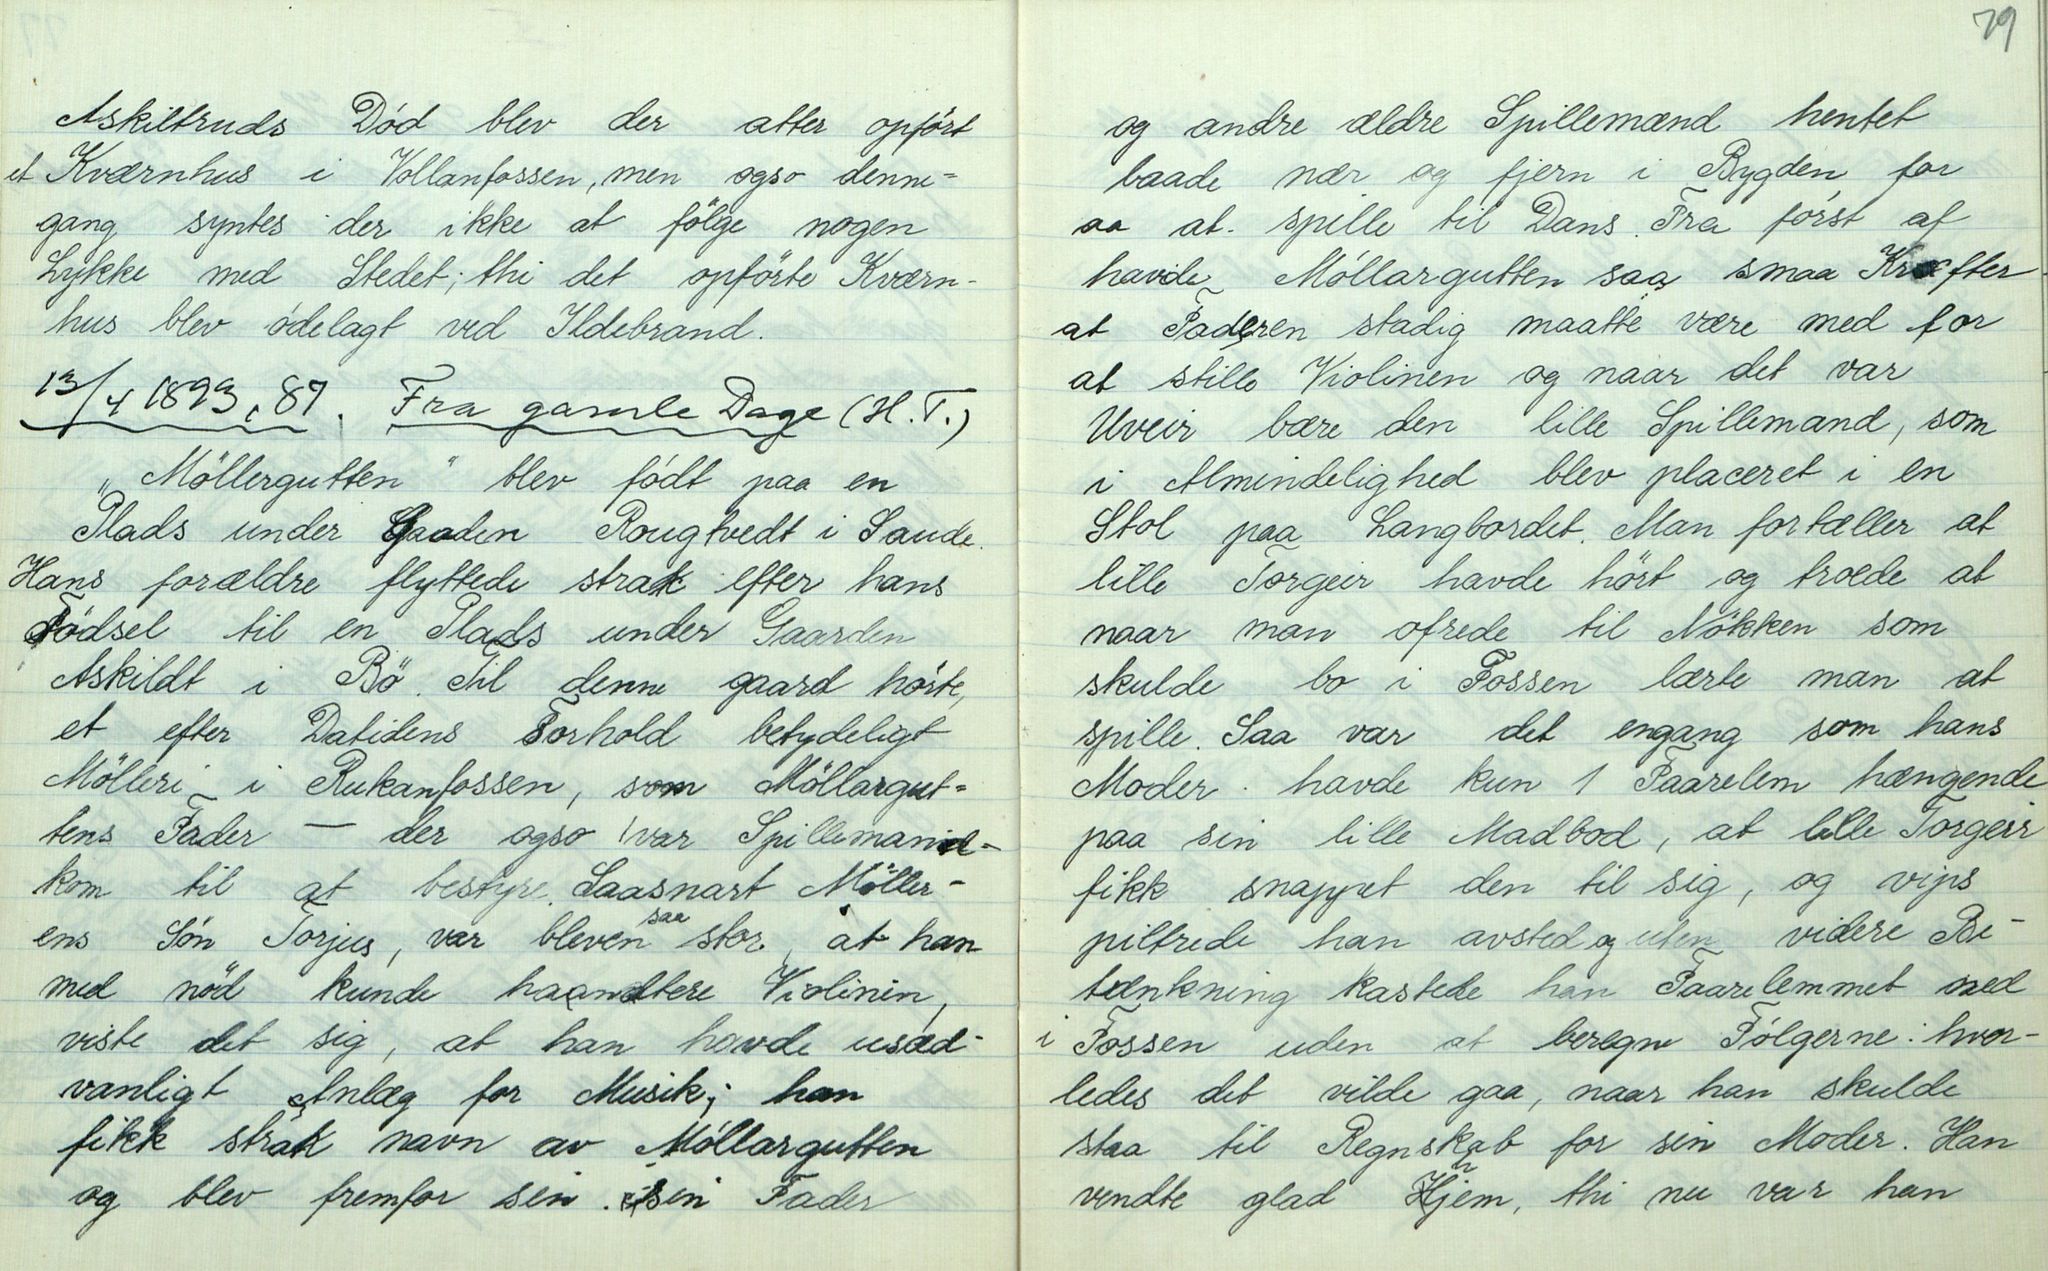 Askiltruds Død blev der atter opført
et Kværnhus i Vollanfossen, men ogso denne-
gang syntes der ikke at følge nogen
Lykke med Stedet; thi det opførte Kværn-
hus blev ødelagt ved Ildebrand.
13/4 1893, 87. Fra gamle Dage (H.T.)
„Møllergutten" blev født paa en
Plads under Gaaden Rougtvedt i Saude.
Hans forældre flyttede strak efter hans
Fødsel til en Plads under Gaarden
Askildt i Bø. Til denne gaard hørte,
et efter Datidens Forhold betydeligt
Mølleri i Rukanfossen, som Møllargut-
tens Fader — der ogso var Spillemand-
kom til at bestyre. Saasnart Møller-
ens Søn Torjus, var bleven saa stor, at han
med nød kunde haandtere Violinen,
viste det sig, at han havde usæd-
vanligt Anlæg for Musik; han
fikk strak navn av Møllargutten
og blev fremfor sin. sin Fader
79
og andre ældre Spillemænd hentet
baade nær og fjern i Bygden for
aa at spille til Dans. Fra først af
havde Møllargutten saa smaa Kræfter
at Faderen stadig maatte være med for
at stille Violinen og naar det var
Uveir bære den lille Spillemand, som
i Almindelighed blev placeret i en
Stol paa Langbordet. Man fortæller at
lille Torgeir havde hørt og troede at
naar man ofrede til Nøkken som
skulde bo i Fossen lærte man at
spille. Saa var det engang som hans
Moder havde kun 1 Faarelem hængende
paa sin lille Madbod, at lille Torgeir
fikk snappet den til sig, og vips
piltrede han avsted og uten videre Be-
tænkning kastede han Faarelemmet ned
i Fossen uden at beregne Følgerne: hvor-
ledes det vilde gaa, naar han skulde
staa til Regnskab for sin Moder. Han
vendte glad Hjem, thi nu var han